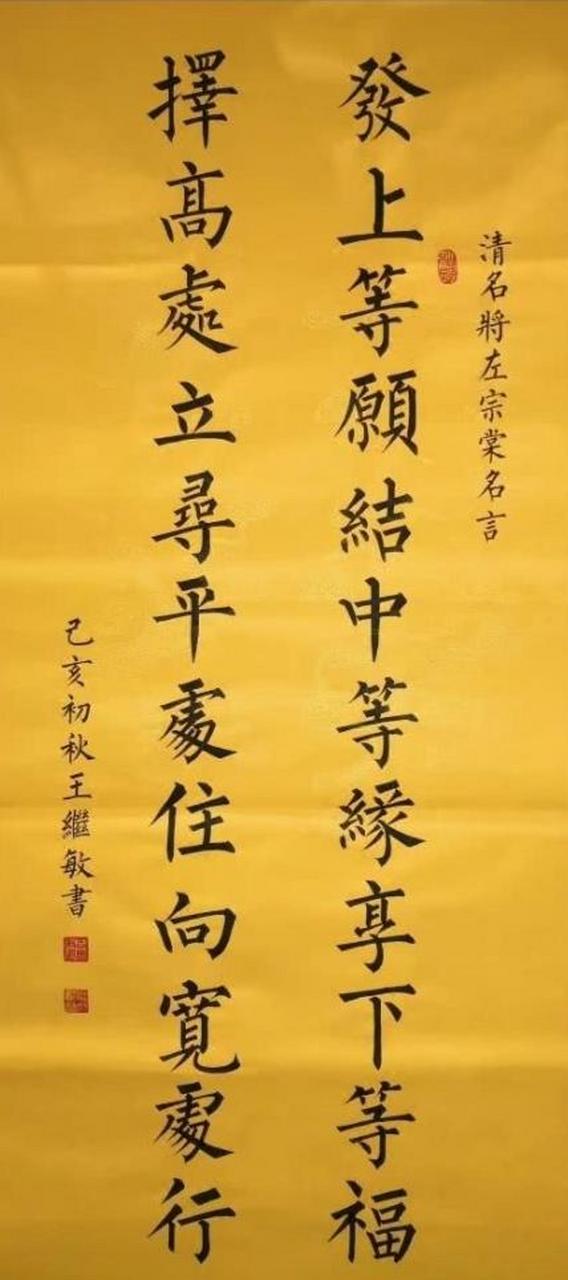 清名將左宗棠名言
發上等願結中等緣享下等福
擇高處立尋平處住向寬處行
己亥初秋王繼敏書